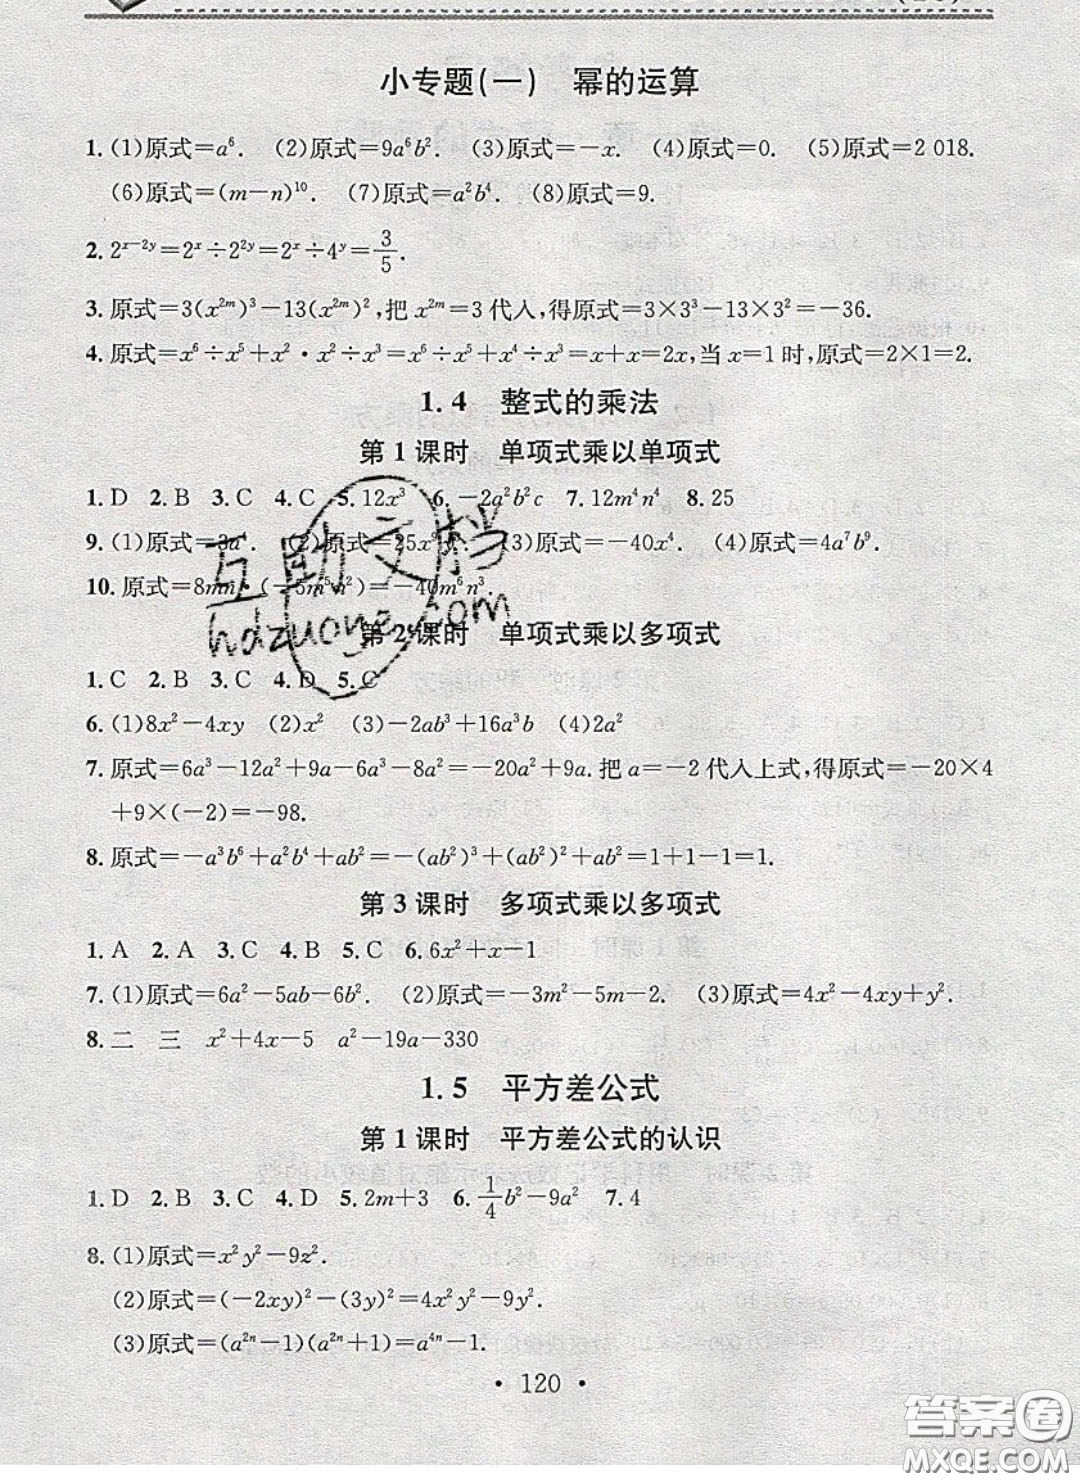 小专题(一)　幂的运算
1. (1)原式=a⁶. (2)原式=9a⁶b². (3)原式=-x. (4)原式=0. (5)原式=2 018.
(6)原式=(m-n)¹⁰. (7)原式=a²b⁴. (8)原式=9.
2. 2ˣ⁻²ʸ=2ˣ÷2²ʸ=2ˣ÷4ʸ=3/5.
3. 原式=3(x²ᵐ)³-13(x²ᵐ)²,把 x²ᵐ=3 代入,得原式=3×3³-13×3²=-36.
4. 原式=x⁶÷x⁵+x²·x²÷x³=x⁶÷x⁵+x⁴÷x³=x+x=2x,当 x=1 时,原式=2×1=2.
1.4　整式的乘法
第 1 课时　单项式乘以单项式
1. D 2. B 3. C 4. C 5. 12x³ 6. -2a²b²c 7. 12m⁴n⁴ 8. 25
9. (1)原式=3a⁴. (2)原式=25x⁹y. (3)原式=-40x⁴. (4)原式=4a⁷b⁹.
10. 原式=8mn·(-5m⁵n²)=-40m⁶n³.
互助文档
hdzuone.com
第 2 课时　单项式乘以多项式
1. C 2. B 3. C 4. D 5. C
6. (1)8x²-4xy (2)x² (3)-2ab³+16a³b (4)2a²
7. 原式=6a³-12a²+9a-6a³-8a²=-20a²+9a.把 a=-2 代入上式,得原式=-20×4
+9×(-2)=-98.
8. 原式=-a³b⁶+a²b⁴+ab²=-(ab²)³+(ab²)²+ab²=1+1-1=1.
第 3 课时　多项式乘以多项式
1. A 2. A 3. C 4. B 5. C 6. 6x²+x-1
7. (1)原式=6a²-5ab-6b². (2)原式=-3m²-5m-2. (3)原式=4x²-4xy+y².
8. 二　三　x²+4x-5　a²-19a-330
1.5　平方差公式
第 1 课时　平方差公式的认识
1. D 2. B 3. C 4. D 5. 2m+3 6. 1/4b²-9a² 7. 4
8. (1)原式=x²y²-9z².
(2)原式=(-2xy)²-(3y)²=4x²y²-9y².
(3)原式=(a²ⁿ-1)(a²ⁿ+1)=a⁴ⁿ-1.
· 120 ·
答案圈
MXQE.COM